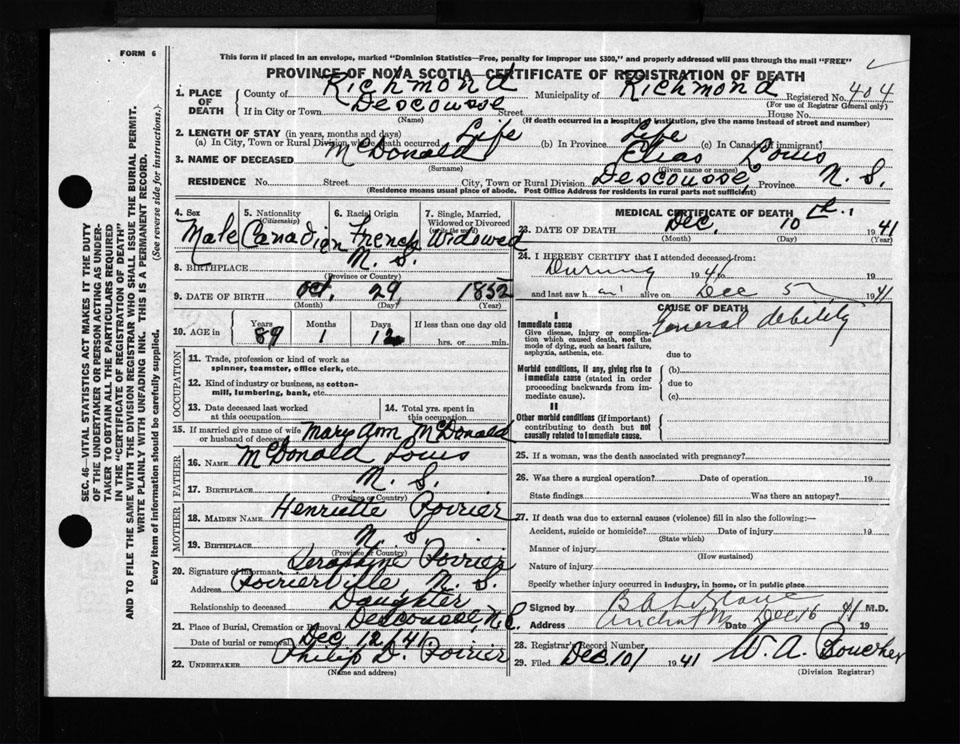 FORM 6
This form if placed in an envelope, marked "Dominion Statistics—Free, penalty for improper use $300," and properly addressed will pass through the mail "FREE"
PROVINCE OF NOVA SCOTIA—CERTIFICATE OF REGISTRATION OF DEATH
1. PLACE OF DEATH County of Richmond Municipality of Richmond Registered No. 404
(For use of Registrar General only)
If in City or Town Descousse Street House No.
(Name) (If death occurred in a hospital or institution, give the name instead of street and number)
2. LENGTH OF STAY (in years, months and days)
(a) In City, Town or Rural Division where death occurred Life (b) In Province Life (c) In Canada (if immigrant)
3. NAME OF DECEASED McDonald Elias Louis
(Surname) (Given name or names)
RESIDENCE No. Street City, Town or Rural Division Descousse, Province N. S.
(Residence means usual place of abode. Post Office Address for residents in rural parts not sufficient)
4. Sex 5. Nationality (Citizenship) 6. Racial Origin 7. Single, Married, Widowed or Divorced (write the word)
Male Canadian French Widowed
8. BIRTHPLACE N. S.
(Province or Country)
9. DATE OF BIRTH Oct. 29 1852
(Month) (Day) (Year)
10. AGE in Years Months Days If less than one day old
89 1 12 hrs. or min.
OCCUPATION
11. Trade, profession or kind of work as spinner, teamster, office clerk, etc.
12. Kind of industry or business, as cotton-mill, lumbering, bank, etc.
13. Date deceased last worked at this occupation 14. Total yrs. spent in this occupation
15. If married give name of wife or husband of deceased Mary Ann McDonald
FATHER
16. Name McDonald Louis
17. Birthplace N. S.
(Province or Country)
MOTHER
18. Maiden Name Henriette Poirier
19. Birthplace N. S.
(Province or Country)
20. Signature of informant Seraphine Poirier
Address Poirierville N. S.
Relationship to deceased Daughter
21. Place of Burial, Cremation or Removal Descousse, N.S.
Date of burial or removal Dec 12/41.
22. UNDERTAKER Philip D. Poirier
(Name and address)
MEDICAL CERTIFICATE OF DEATH
23. DATE OF DEATH Dec. 10th. 1941
(Month) (Day) (Year)
24. I HEREBY CERTIFY that I attended deceased from:
During 1941 to 19
and last saw h im alive on Dec 5 1941
CAUSE OF DEATH
I
Immediate cause General debility
Give disease, injury or complication which caused death, not the mode of dying, such as heart failure, asphyxia, asthenia, etc.
due to
Morbid conditions, if any, giving rise to immediate cause (stated in order proceeding backwards from immediate cause).
(b)
due to
(c)
II
Other morbid conditions (if important) contributing to death but not causally related to immediate cause.
25. If a woman, was the death associated with pregnancy?
26. Was there a surgical operation? Date of operation 19
State findings Was there an autopsy?
27. If death was due to external causes (violence) fill in also the following:—
Accident, suicide or homicide? Date of injury 19
(State which)
Manner of injury
(How sustained)
Nature of injury
Specify whether injury occurred in industry, in home, or in public place
Signed by M.D.
Address Date Dec 16 1941
28. Registrar's Record Number
29. Filed Dec 10/ 1941 W. A. Boucher
(Division Registrar)
SEC. 46—VITAL STATISTICS ACT MAKES IT THE DUTY
OF THE UNDERTAKER OR PERSON ACTING AS UNDER-
TAKER TO OBTAIN ALL THE PARTICULARS REQUIRED
IN THE "CERTIFICATE OF REGISTRATION OF DEATH"
AND TO FILE THE SAME WITH THE DIVISION REGISTRAR WHO SHALL ISSUE THE BURIAL PERMIT.
WRITE PLAINLY WITH UNFADING INK. THIS IS A PERMANENT RECORD.
Every item of information should be carefully supplied. (See reverse side for instructions.)